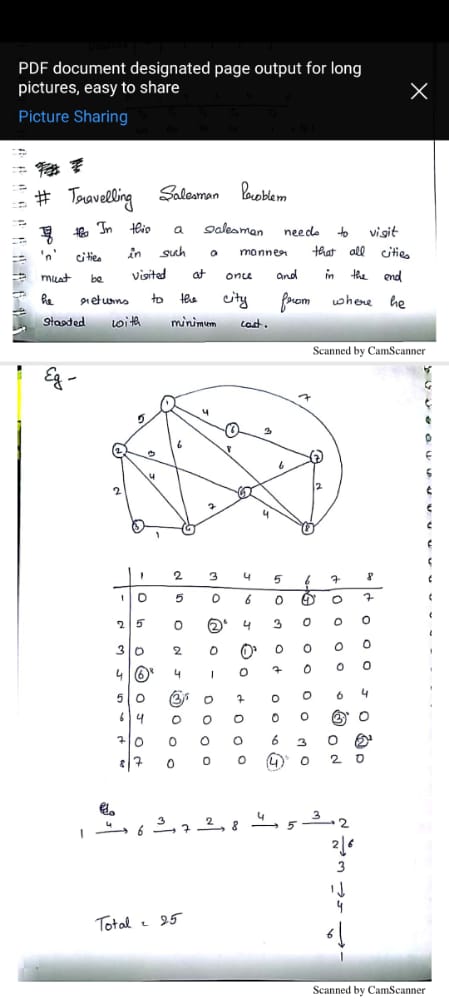 PDF document designated page output for long
pictures, easy to share
Picture Sharing
# Travelling Salesman Problem
In this a salesman needs to visit
'n' cities in such a manner that all cities
must be visited at once and in the end
he returns to the city from where he
started with minimum cost.
Scanned by CamScanner
Eg -
7
1
5
4
6
3
8
2
3
4
6
7
6
5
2
7
2
4
3
1
4
8
1 2 3 4 5 6 7 8
1 0 5 0 6 0 4 0 7
2 5 0 2 4 3 0 0 0
3 0 2 0 1 0 0 0 0
4 6 4 1 0 7 0 0 0
5 0 3 0 7 0 0 6 4
6 4 0 0 0 0 0 3 0
7 0 0 0 0 6 3 0 2
8 7 0 0 0 4 0 2 0
4 3 2 4 3
1 → 6 → 7 → 8 → 5 → 2
2 ↓
3
1 ↓
4
Total = 25
6 ↓
1
Scanned by CamScanner